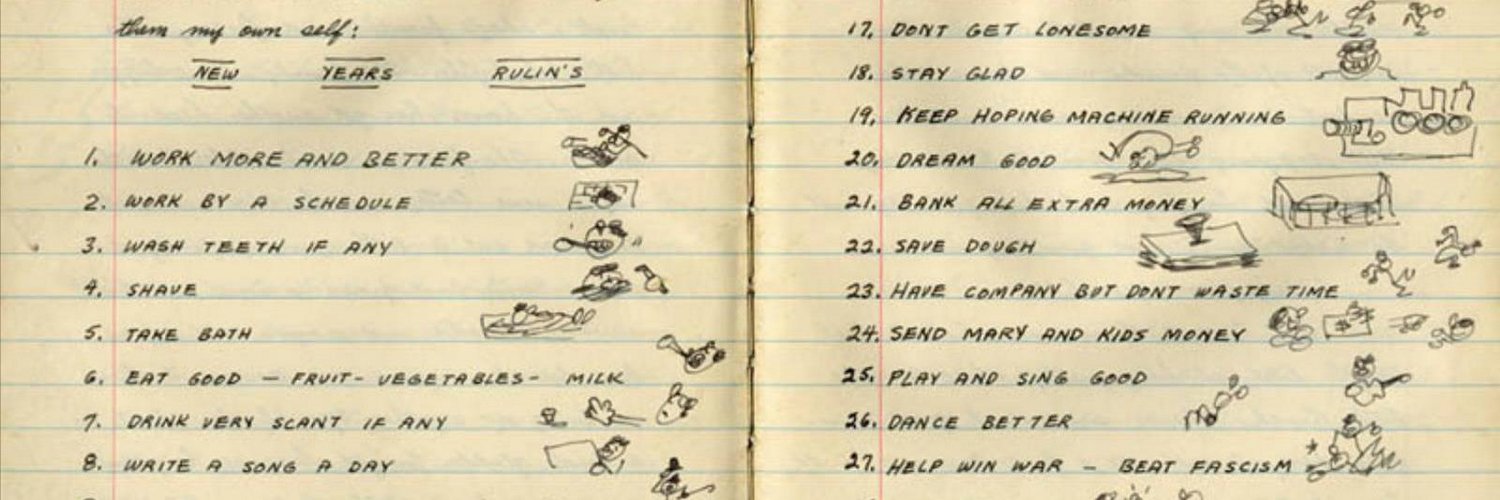 them my own self:
NEW YEARS RULIN'S
1. WORK MORE AND BETTER
2. WORK BY A SCHEDULE
3. WASH TEETH IF ANY
4. SHAVE
5. TAKE BATH
6. EAT GOOD — FRUIT - VEGETABLES - MILK
7. DRINK VERY SCANT IF ANY
8. WRITE A SONG A DAY
17. DONT GET LONESOME
18. STAY GLAD
19. KEEP HOPING MACHINE RUNNING
20. DREAM GOOD
21. BANK ALL EXTRA MONEY
22. SAVE DOUGH
23. HAVE COMPANY BUT DONT WASTE TIME
24. SEND MARY AND KIDS MONEY
25. PLAY AND SING GOOD
26. DANCE BETTER
27. HELP WIN WAR — BEAT FASCISM